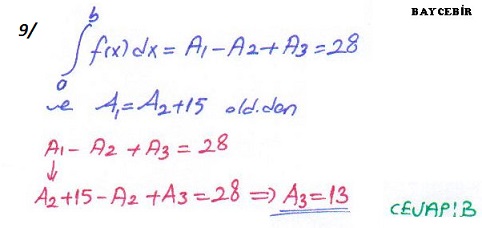 BAYCEBİR
9/
∫₀ᵇ f(x) dx = A₁ - A₂ + A₃ = 28
ve A₁ = A₂ + 15 old.dan
A₁ - A₂ + A₃ = 28
↓
A₂ + 15 - A₂ + A₃ = 28 ⇒ A₃ = 13
CEVAP: B